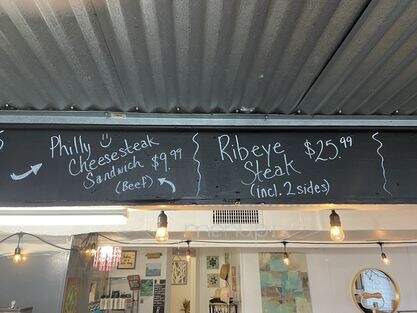 Philly
Cheesesteak
Sandwich $9.99
(Beef)
Ribeye $25.99
Steak
(incl. 2 sides)